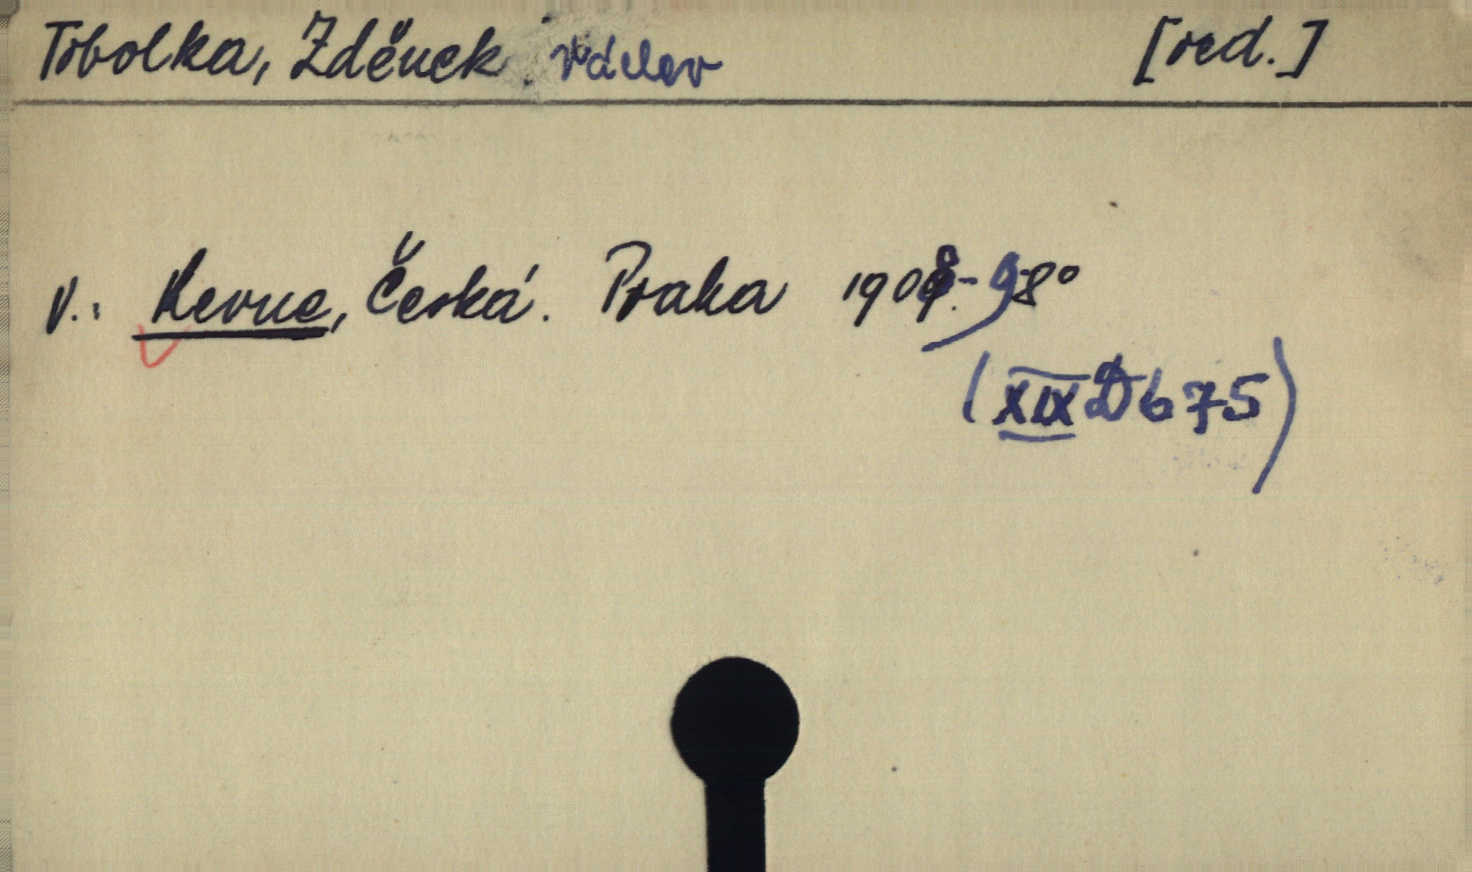 Tobolka, Zděnek Václav [red.]
V.: Revue, Česká. Praha 1908-9 8°
(XIX D 675)